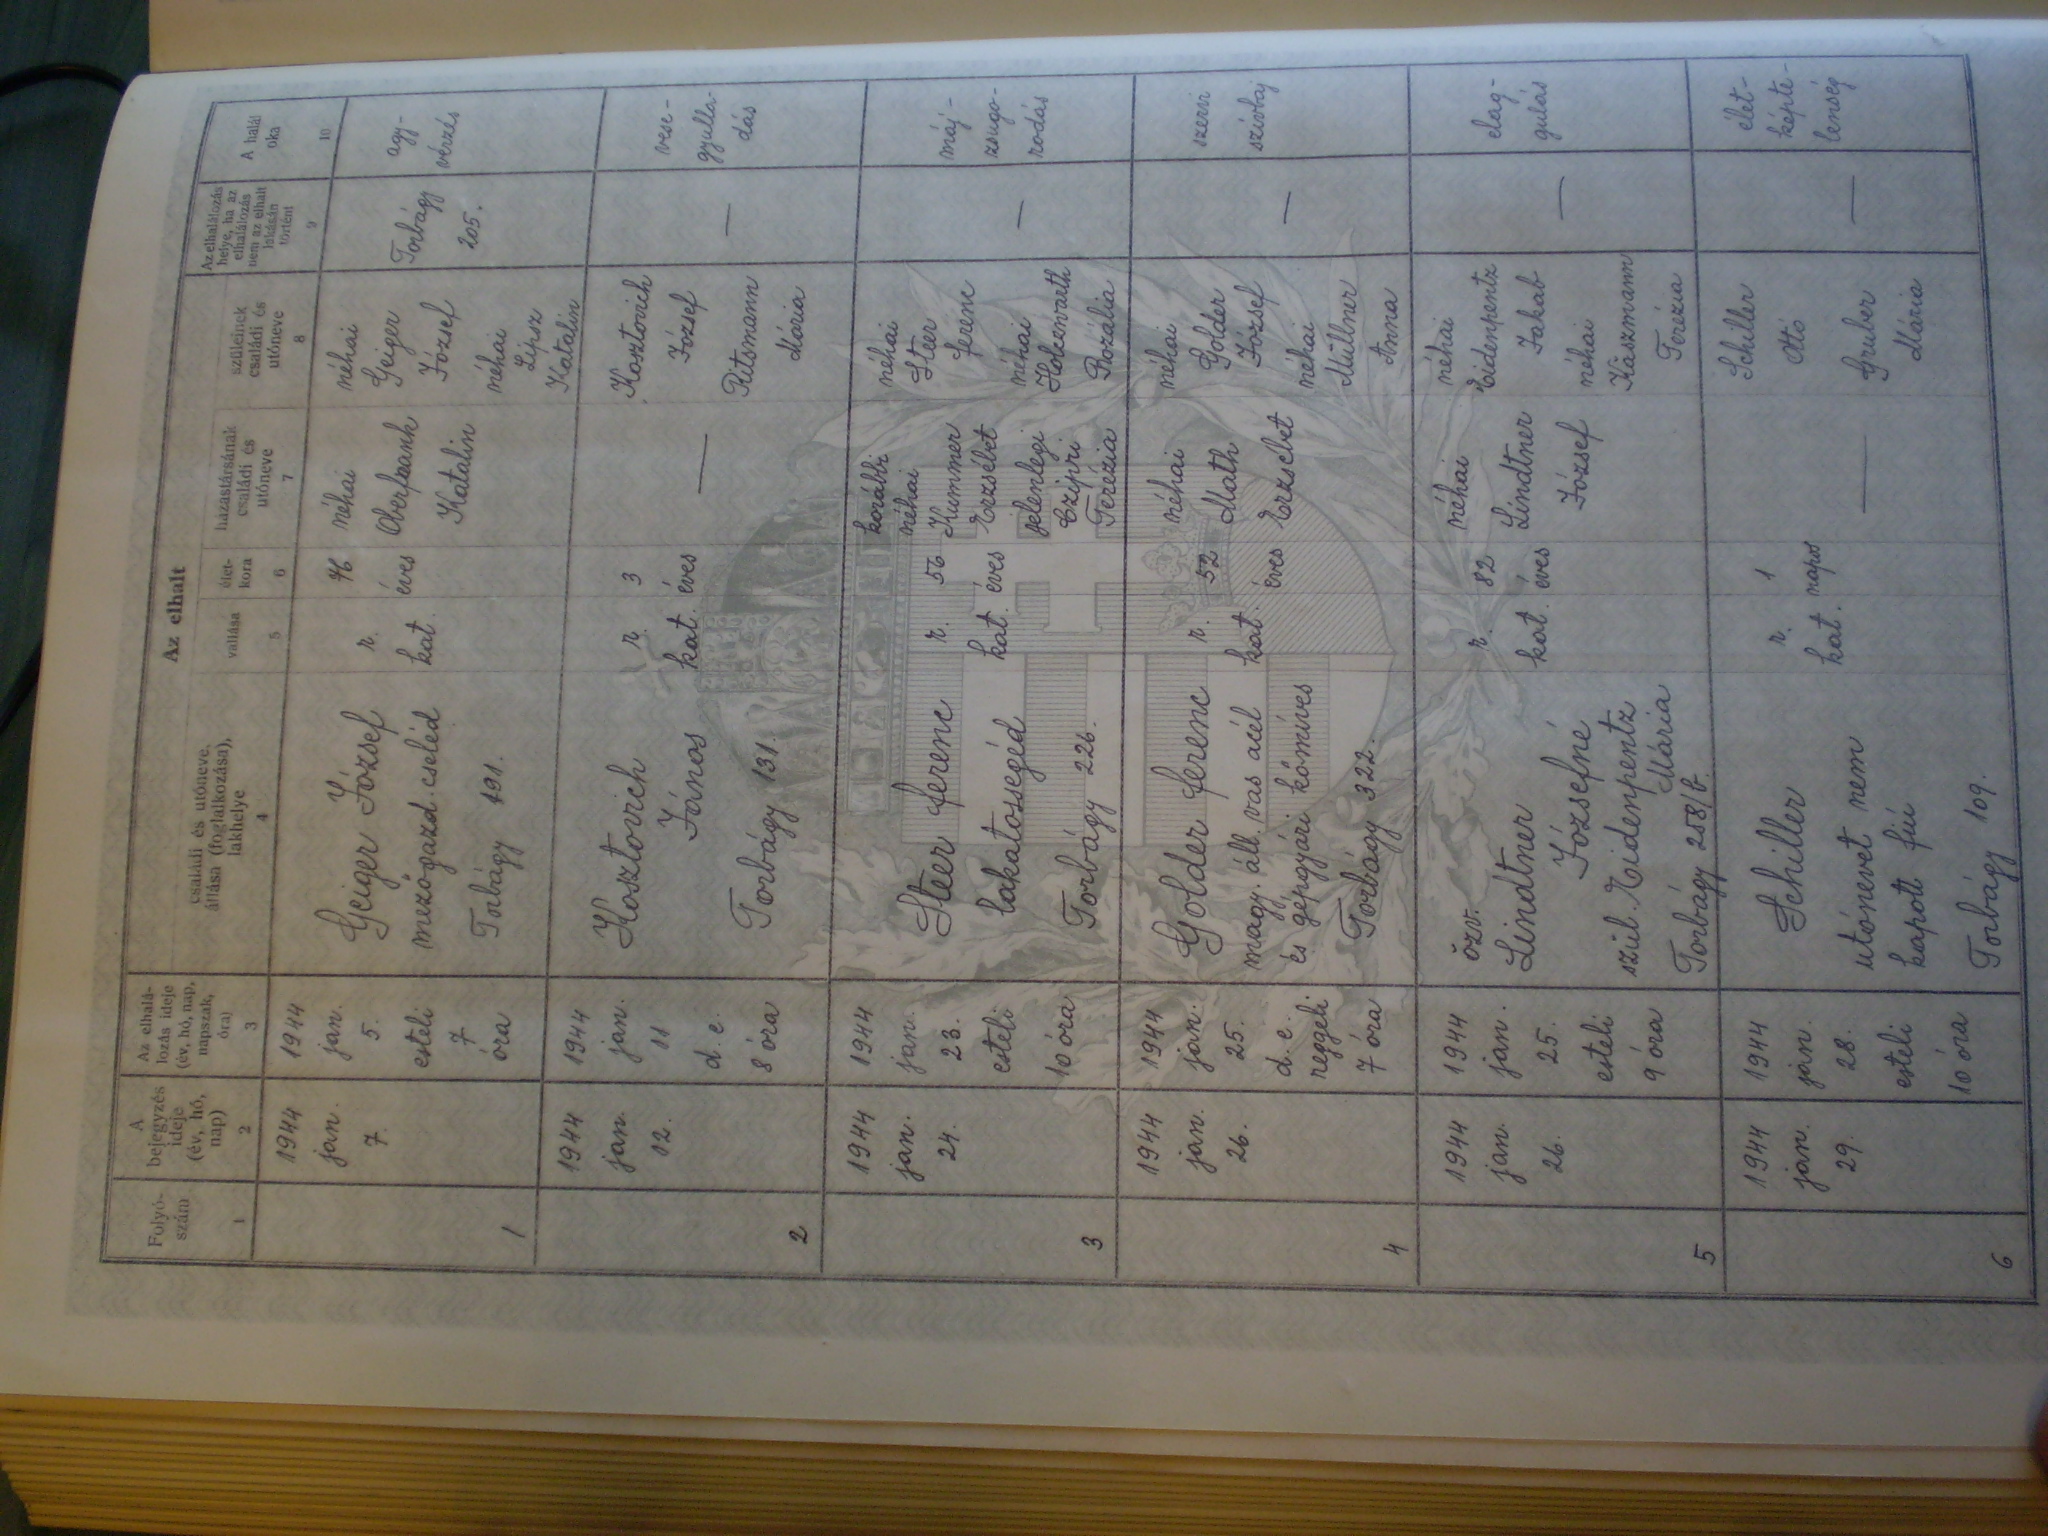 Az elhalt
Folyó-
szám
1
A
bejegyzés
ideje
(év, hó,
nap)
2
Az elhalá-
lozás ideje
(év, hó, nap,
napszak,
óra)
3
családi és utóneve,
állása (foglalkozása),
lakhelye
4
vallása
5
élet-
kora
6
házastársának
családi és
utóneve
7
szüleinek
családi és
utóneve
8
Az elhalálozás
helye, ha az
elhalálozás
nem az elhalt
lakásán
történt
9
A halál
oka
10
1
1944
jan.
7.
1944
jan.
5.
esteli
7
óra
Geiger József
mezőgazd. cseléd
Torbágy 191.
r.
kat.
76
éves
néhai
Oberfrank
Katalin
néhai
Geiger
József
néhai
Lipsz
Katalin
Torbágy
205.
agy-
vérzés
2
1944
jan.
12.
1944
jan.
11
d. e.
8 óra
Kosztovich
János
Torbágy 131.
r.
kat.
3
éves
—
Kosztovich
József
Ritsmann
Mária
—
vese-
gyulla-
dás
3
1944
jan.
24.
1944
jan.
23.
esteli
10 óra
Steer Ferenc
lakatossegéd
Torbágy 226.
r.
kat.
56
éves
korábbi
néhai
Kummer
Erzsébet
jelenlegi
Czipri
Terézia
néhai
Steer
Ferenc
néhai
Hokenvarth
Rozália
—
máj-
zsugo-
rodás
4
1944
jan.
26.
1944
jan.
25.
d. e.
reggeli
7 óra
Golder Ferenc
magy. áll. vas acél
és gépgyári kőmíves
Torbágy 322.
r.
kat.
52
éves
néhai
Math
Erzsébet
néhai
Golder
József
néhai
Müllner
Anna
—
szervi
szívbaj
5
1944
jan.
26.
1944
jan.
25.
esteli
9 óra
özv.
Lindtner
Józsefné
szül. Eidenpentz
Mária
Torbágy 258/b.
r.
kat.
82
éves
néhai
Lindtner
József
néhai
Eidenpentz
Jakab
néhai
Kászmann
Terézia
—
elag-
gulás
6
1944
jan.
29.
1944
jan.
28.
esteli
10 óra
Schiller
utónevet nem
kapott fiú
Torbágy 109.
r.
kat.
1
napos
—
Schiller
Ottó
Gruber
Mária
—
élet-
képte-
lenség